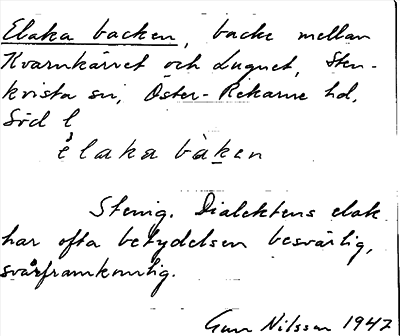 Elaka backen, backe mellan
Kvarnkärret och Lugnet, Sten-
kvista sn, Öster-Rekarne hd,
Söd l
èlaka bàken
Stenig. Dialektens elak
har ofta betydelsen besvärlig,
svårframkomlig.
Gun Nilsson 1947